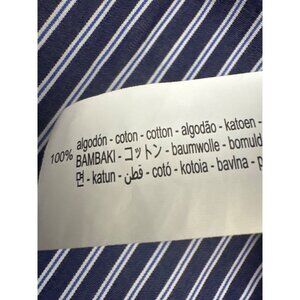 100% algodón - coton - cotton - algodão - katoen -
BAMBAKI - コットン - baumwolle - bomuld
면 - katun - قطن - cotó - kotoia - bavlna - p